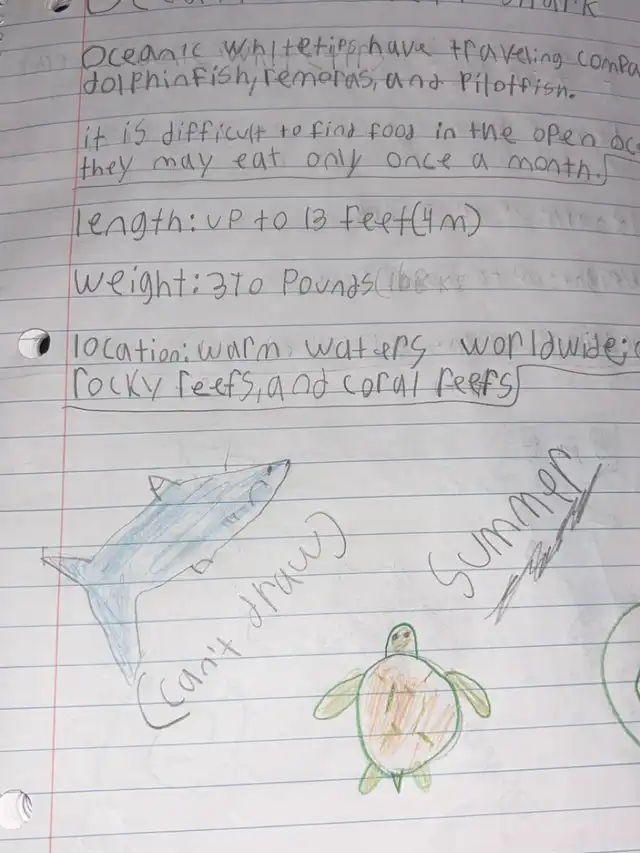 Oceanic whitetips have traveling compa
dolphinfish, remoras, and pilotfish.
it is difficult to find food in the open oc
they may eat only once a month.
length: up to 13 feet (4 m)
weight: 370 pounds (
location: warm waters worldwide;
rocky reefs, and coral reefs
(can't draw)
Summer